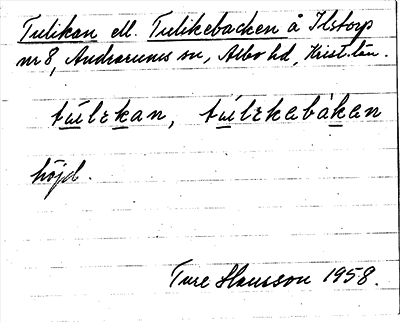 Tulikan ell. Tulikebacken å Ilstorp
nr 8, Andrarums sn, Albo hd, Krist. län.
túlekan, túlekabàkan
höjd.
Ture Hansson 1958.